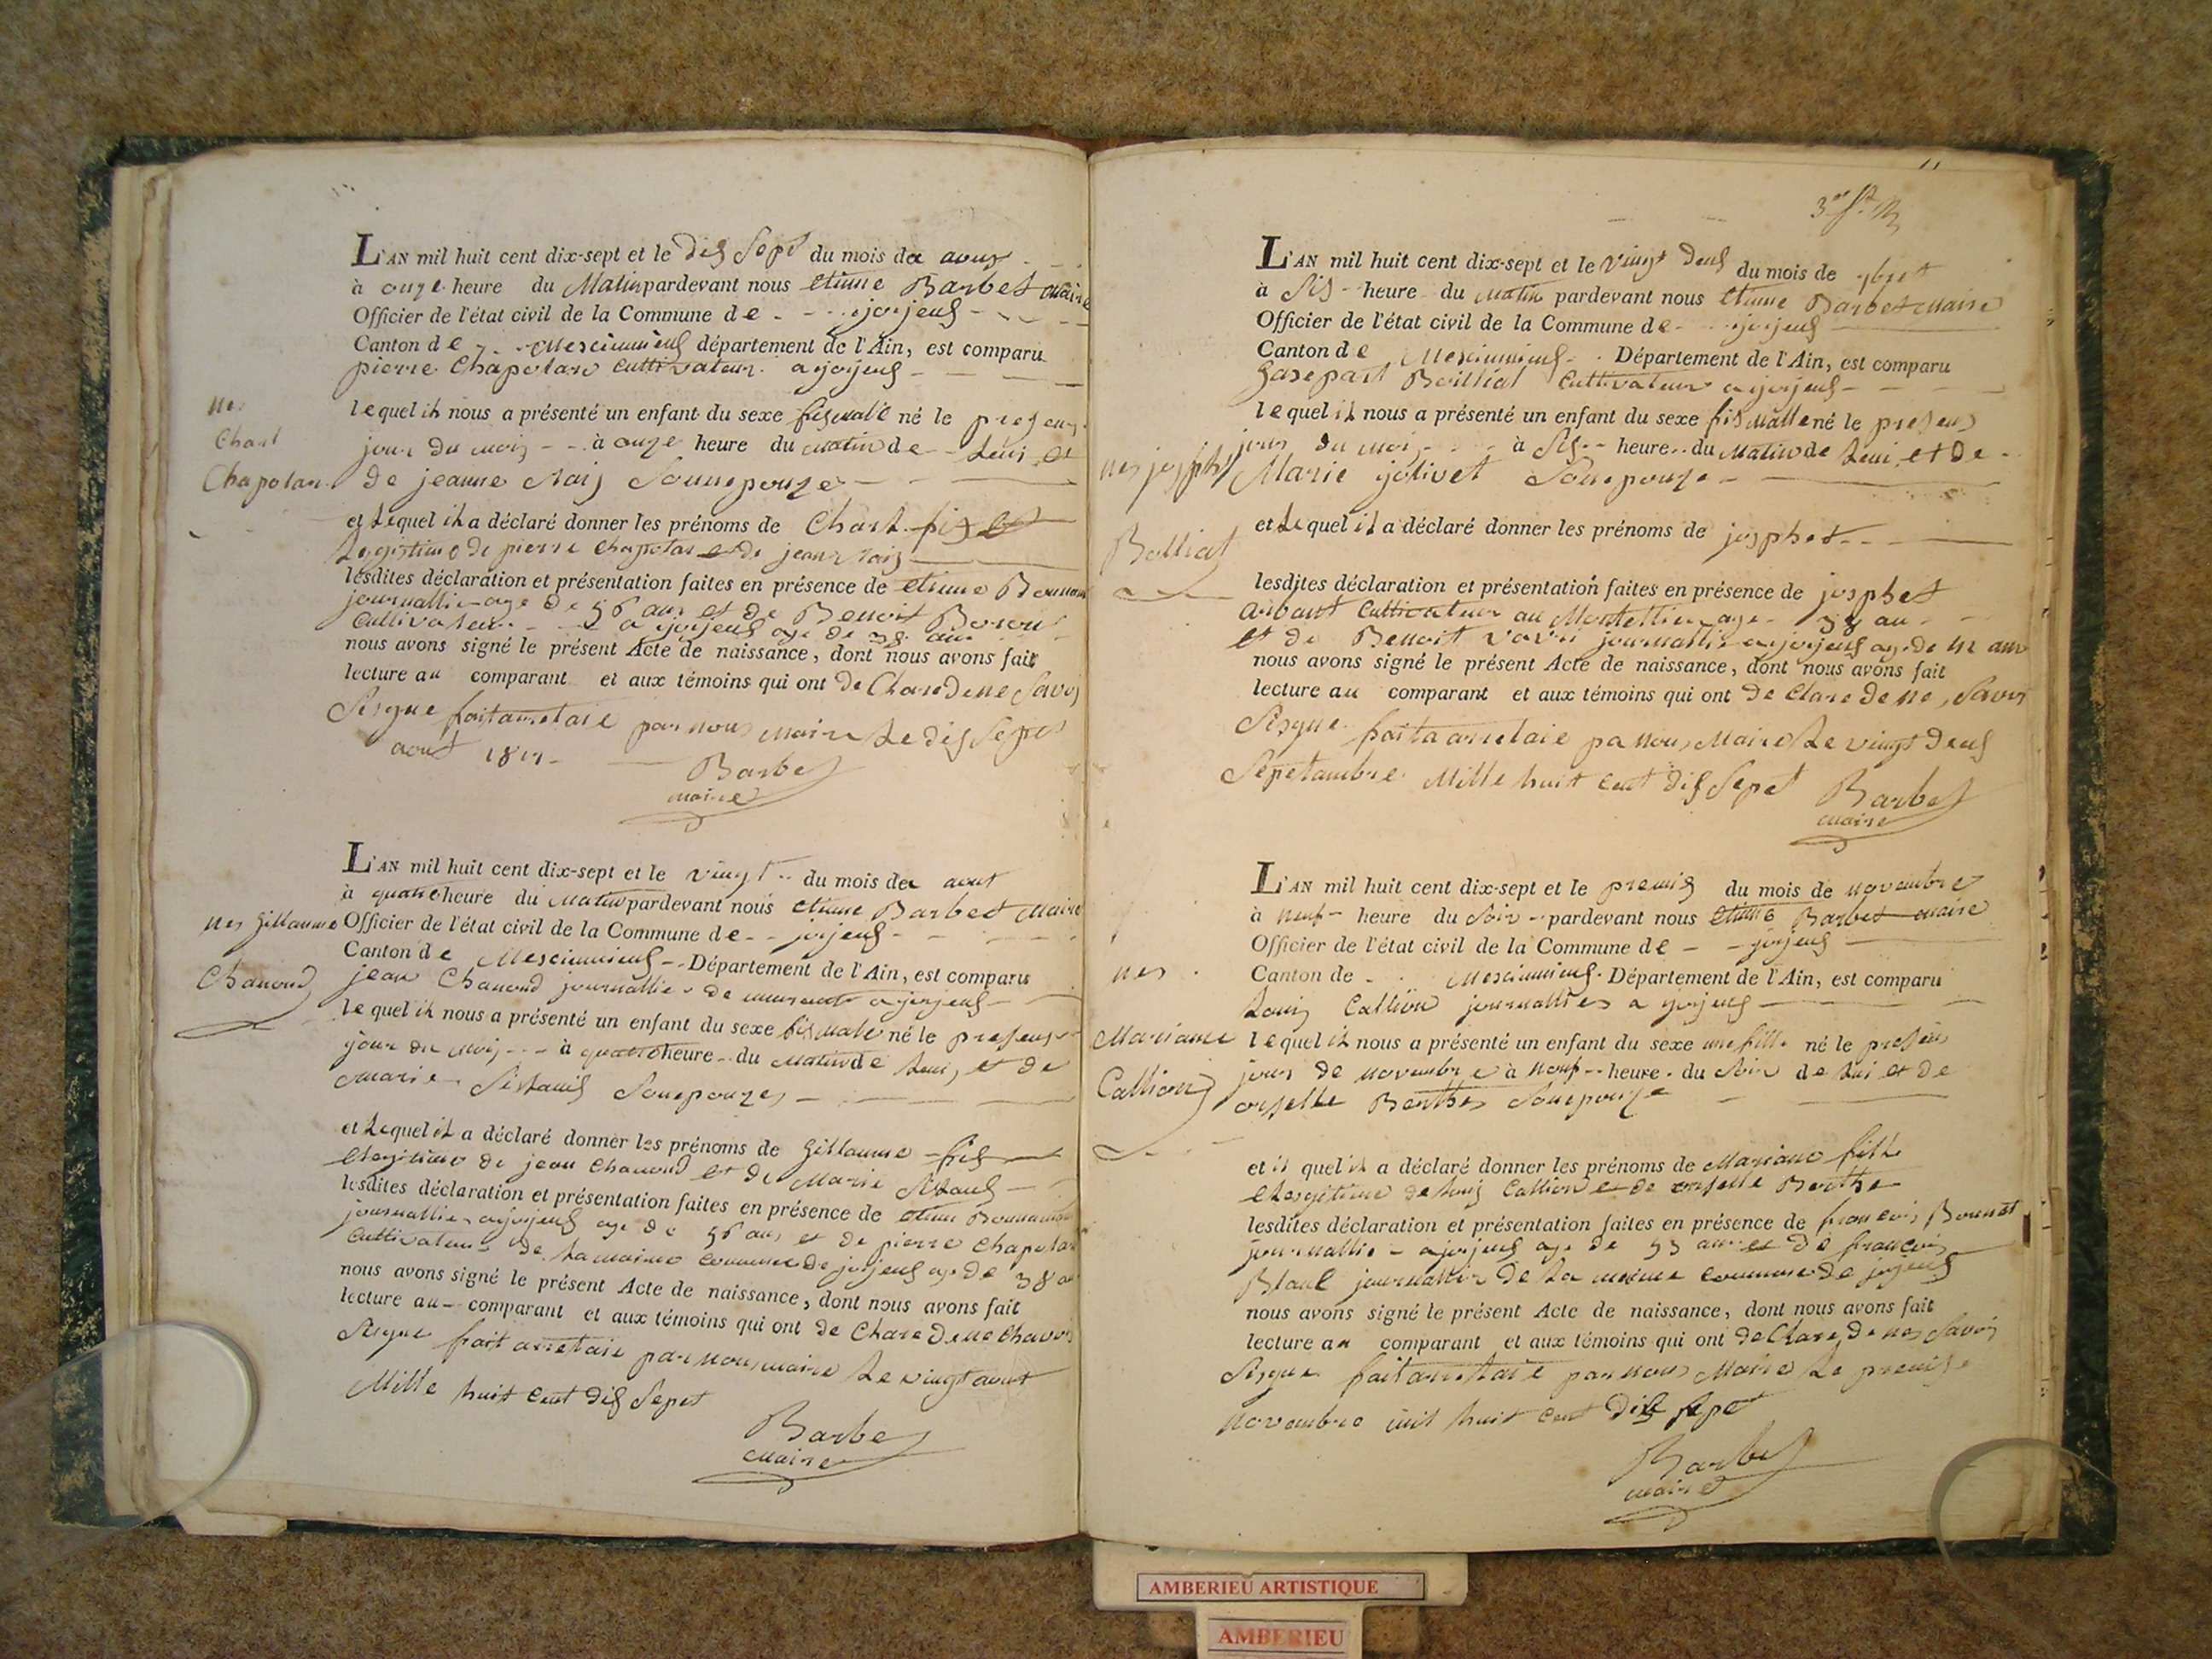 L'AN mil huit cent dix-sept et le dis Sept du mois de aous
à onze heure du Matin pardevant nous etiene Barbet maire
Officier de l'état civil de la Commune de joijeus
Canton de Mescimieus département de l'Ain, est comparu
pierre Chapolar Cultivateur a joijeus
lequel il nous a présenté un enfant du sexe fis male né le presens
nes
Charl
Chapolar
jour du mois à onze heure du matin de Lui et
de jeanne Rois Son epouze
et Lequel il a déclaré donner les prénoms de Charl fis
Legitime de pierre Chapolar et de jeane Rois
lesdites déclaration et présentation faites en présence de etiene
journallie age de 56 ans et de Benoit
Cultivateur a joijeus age de 38 ans
nous avons signé le présent Acte de naissance, dont nous avons fait
lecture au comparant et aux témoins qui ont de Clare de ne Savoi
Sisgne fait a par nous maire Le dis Sept
aout 1817
Barbet
maire
L'AN mil huit cent dix-sept et le vingt du mois de aout
à quatre heure du Matin pardevant nous etiene Barbet Maire
nes Gillaume
Chanoud
Officier de l'état civil de la Commune de joijeus
Canton de Mescimieus Département de l'Ain, est comparu
jean Chanoud journallie de a joijeus
le quel il nous a présenté un enfant du sexe fis male né le presens
jour du mois à quatre heure du Matin de Lui et de
marie Son epouze
et Lequel il a déclaré donner les prénoms de Gillaume fis
Legitime de jean Chanoud et de Marie
lesdites déclaration et présentation faites en présence de etiene
journallie a joijeus age de 56 ans et de pierre Chapolar
Cultivateur de La maime commune de joijeus age de 38 an
nous avons signé le présent Acte de naissance, dont nous avons fait
lecture au comparant et aux témoins qui ont de Clare de ne Chavoir
Sisgne fait par nous maire Le vingt aout
Mille huit Cent dis Sepet
Barbet
maire
L'AN mil huit cent dix-sept et le vingt deus du mois de 7bret
à Sis heure du matin pardevant nous etiene Barbet maire
Officier de l'état civil de la Commune de joijeus
Canton de Mescimieus Département de l'Ain, est comparu
Cultivateur a joijeus
lequel il nous a présenté un enfant du sexe fis malle né le presens
nes josphet
Bolliat
jour du mois à Sis heure du Matin de Lui et de
Marie jolivet Son epouze
et Lequel il a déclaré donner les prénoms de josphet
lesdites déclaration et présentation faites en présence de josphet
Cultivateur au Montellier age 38 an
et de Benoit journallie a joijeus age de 42 ans
nous avons signé le présent Acte de naissance, dont nous avons fait
lecture au comparant et aux témoins qui ont de Clare de ne Savoir
Sisgne fait a pa nous Maire Le vingt deus
Sepetambre Mille huit Cent dis Sepet Barbet
maire
L'AN mil huit cent dix-sept et le premis du mois de novembre
à neuf heure du Soir pardevant nous etiene Barbet maire
Officier de l'état civil de la Commune de joijeus
Canton de Mescimieus Département de l'Ain, est comparu
Louis Callion journallies a joijeus
nes
Mariane
Callion
lequel il nous a présenté un enfant du sexe une fille né le presens
jour de novembre à neuf heure du Soir de Lui et de
Berthe Son epouze
et il quel il a déclaré donner les prénoms de Mariane fille
de Louis Callion et de Berthe
lesdites déclaration et présentation faites en présence de francois Bounet
journallie a joijeus age de 53 ans et de francois
Blanc journallie de La meime commune de joijeus
nous avons signé le présent Acte de naissance, dont nous avons fait
lecture au comparant et aux témoins qui ont de Clare de nes Savoir
Sisgne fait par nous Maire Le premis
novembre mil huit Cent dis sepet
Barbet
maire
AMBERIEU ARTISTIQUE
AMBERIEU